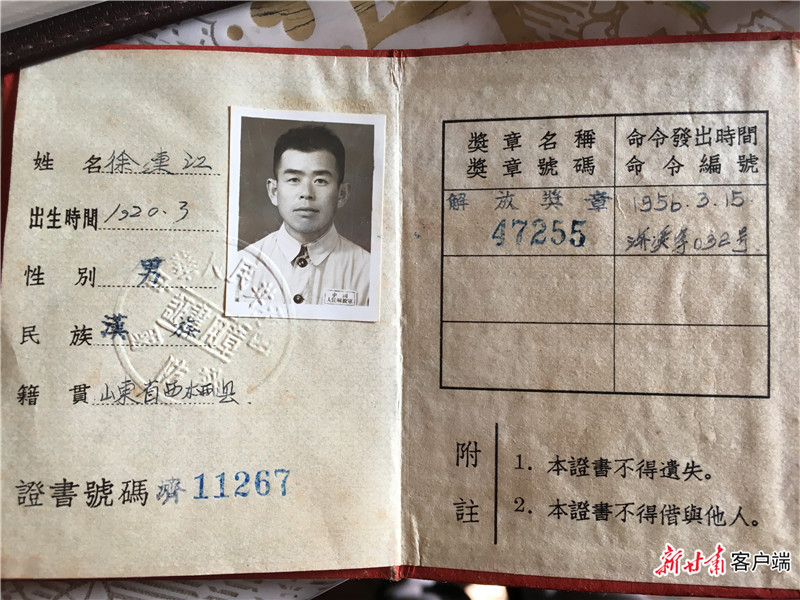 姓 名 徐連江
出生時間 1920.3
性 別 男
民 族 漢 族
籍 貫 山東省西栖县
證書號碼 濟 11267
獎章名稱
獎章號碼
命令發出時間
命令編號
解放獎章
47255
1956.3.15.
032号
附註
1. 本證書不得遺失。
2. 本證書不得借與他人。
新甘肃客户端